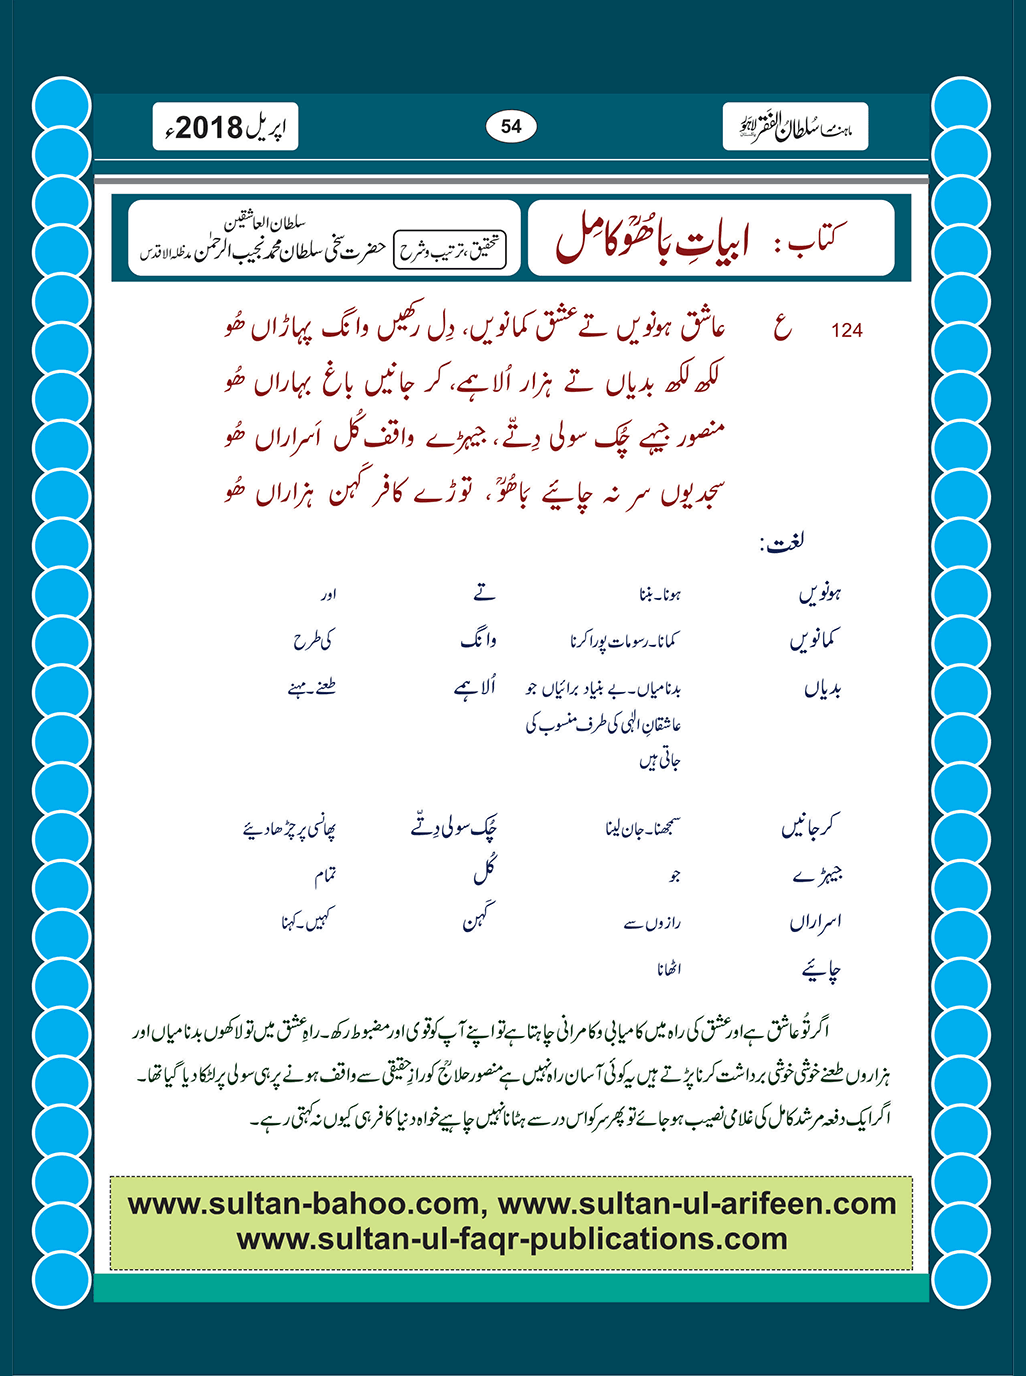 ماہنامہ سُلطان الفقر لاہور
54
اپریل 2018ء
کتاب : ابیاتِ بَاھُوؒ کامِل
تحقیق، ترتیب و شرح
سلطان العاشقین
حضرت سخی سلطان محمد نجیب الرحمٰن مدظلہ الاقدس
124 ع عاشق ہونویں تے عشق کمانویں، دِل رکھیں وانگ پہاڑاں ھُو
لکھ لکھ بدیاں تے ہزار اُلاہمے، کر جانیں باغ بہاراں ھُو
منصور جیہے چُک سولی دِتّے، جیہڑے واقف کُل اَسراراں ھُو
سجدیوں سر نہ چائیے بَاھُوؒ، توڑے کافر کَہن ہزاراں ھُو
لغت:
ہونویں ہونا۔ بننا تے اور
کمانویں کمانا۔ رسومات پورا کرنا وانگ کی طرح
بدیاں بدنامیاں۔ بے بنیاد برائیاں جو اُلاہمے طعنے۔ مہنے
عاشقانِ الٰہی کی طرف منسوب کی
جاتی ہیں
کر جانیں سمجھنا۔ جان لینا چُک سولی دِتّے پھانسی پر چڑھا دیئے
جیہڑے جو کُل تمام
اسراراں رازوں سے کَہن کہیں۔ کہنا
چائیے اٹھانا
اگر تُو عاشق ہے اور عشق کی راہ میں کامیابی و کامرانی چاہتا ہے تو اپنے آپ کو قوی اور مضبوط رکھ۔ راہِ عشق میں تو لاکھوں بدنامیاں اور
ہزاروں طعنے خوشی خوشی برداشت کرنا پڑتے ہیں یہ کوئی آسان راہ نہیں ہے منصور حلاجؒ کو رازِ حقیقی سے واقف ہونے پر ہی سولی پر لٹکا دیا گیا تھا۔
اگر ایک دفعہ مرشد کامل کی غلامی نصیب ہو جائے تو پھر سر کو اس در سے ہٹانا نہیں چاہیے خواہ دنیا کافر ہی کیوں نہ کہتی رہے۔
www.sultan-bahoo.com, www.sultan-ul-arifeen.com
www.sultan-ul-faqr-publications.com